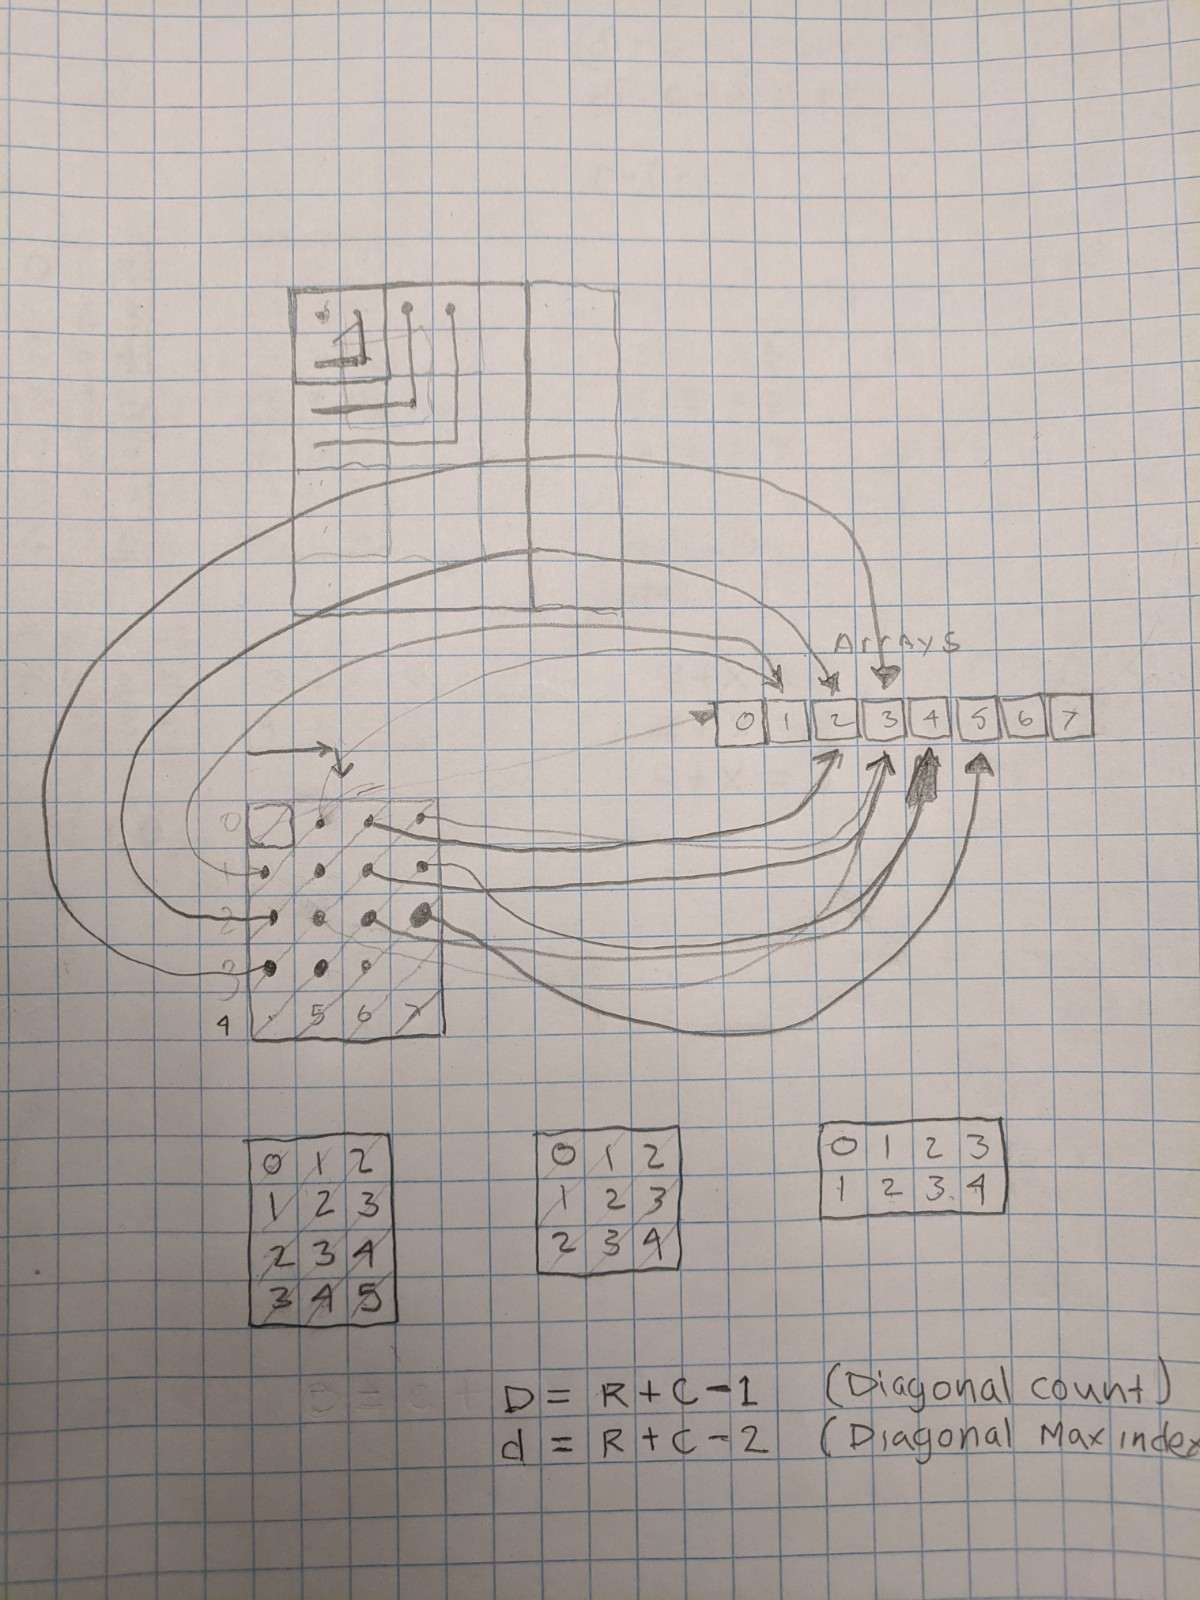 Arrays
0 1 2 3 4 5 6 7
0
1
2
3
4 5 6 7
0 1 2
1 2 3
2 3 4
3 4 5
0 1 2
1 2 3
2 3 4
0 1 2 3
1 2 3. 4
D = R + C - 1 (Diagonal count)
d = R + C - 2 (Diagonal Max index